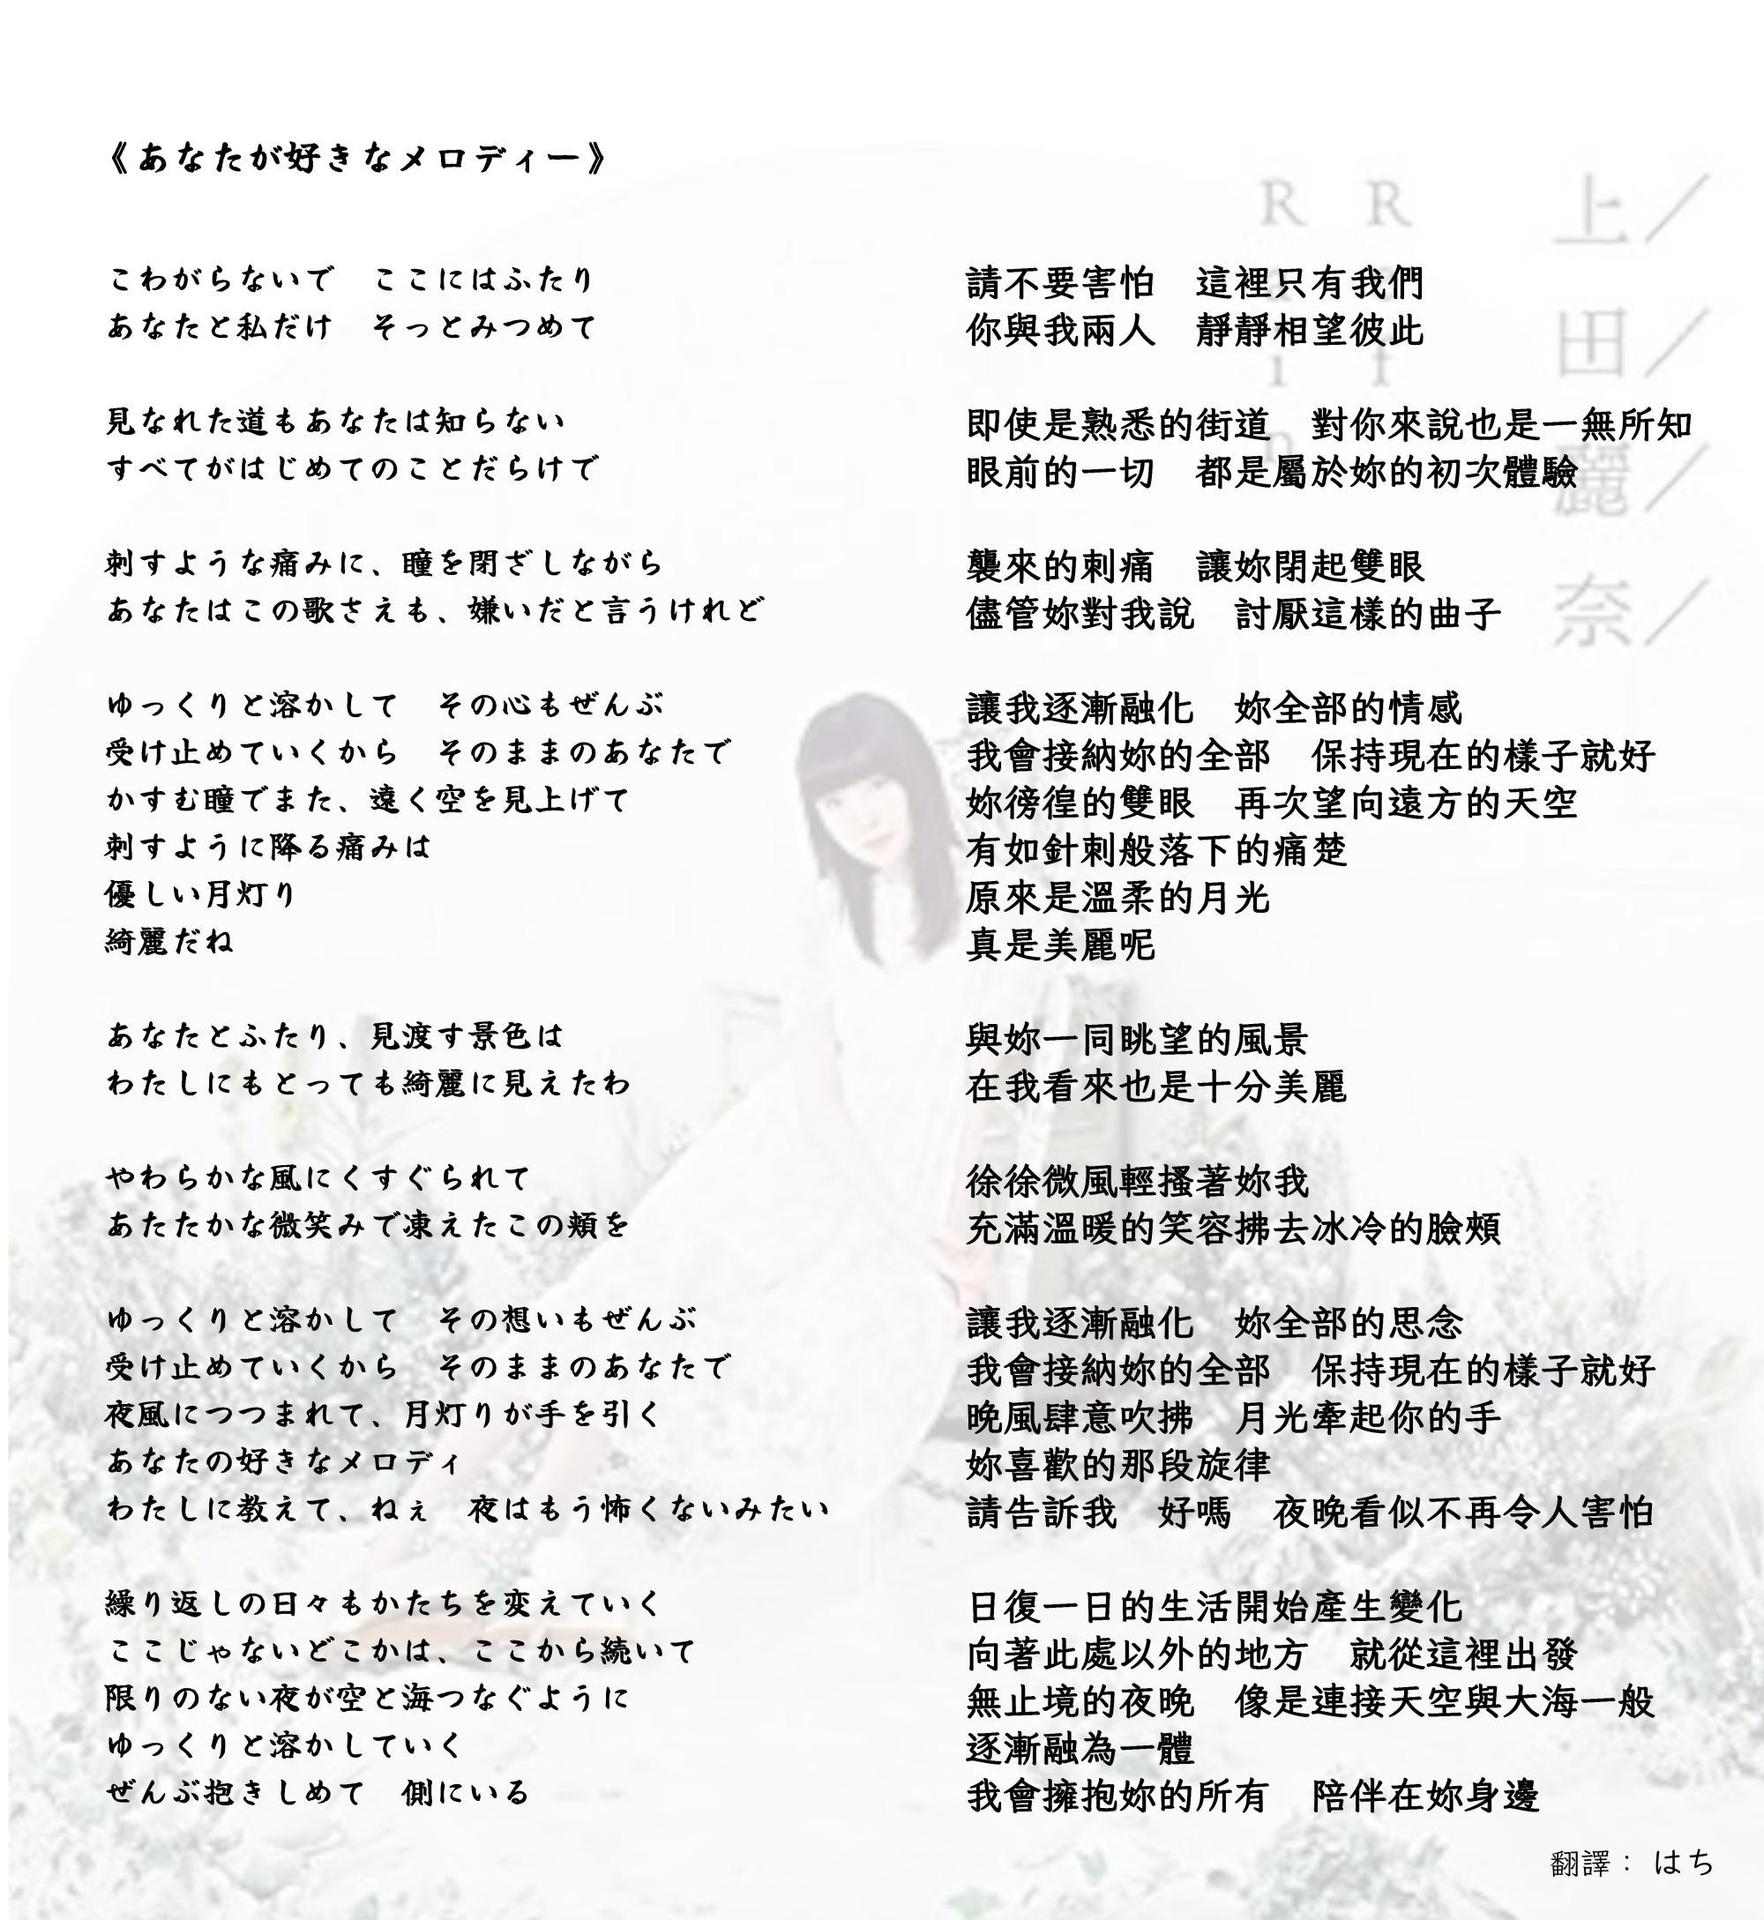 《あなたが好きなメロディー》
こわがらないで　ここにはふたり
あなたと私だけ　そっとみつめて
見なれた道もあなたは知らない
すべてがはじめてのことだらけで
刺すような痛みに、瞳を閉ざしながら
あなたはこの歌さえも、嫌いだと言うけれど
ゆっくりと溶かして　その心もぜんぶ
受け止めていくから　そのままのあなたで
かすむ瞳でまた、遠く空を見上げて
刺すように降る痛みは
優しい月灯り
綺麗だね
あなたとふたり、見渡す景色は
わたしにもとっても綺麗に見えたわ
やわらかな風にくすぐられて
あたたかな微笑みで凍えたこの頬を
ゆっくりと溶かして　その想いもぜんぶ
受け止めていくから　そのままのあなたで
夜風につつまれて、月灯りが手を引く
あなたの好きなメロディ
わたしに教えて、ねぇ　夜はもう怖くないみたい
繰り返しの日々もかたちを変えていく
ここじゃないどこかは、ここから続いて
限りのない夜が空と海つなぐように
ゆっくりと溶かしていく
ぜんぶ抱きしめて　側にいる
請不要害怕　這裡只有我們
你與我兩人　靜靜相望彼此
即使是熟悉的街道　對你來說也是一無所知
眼前的一切　都是屬於妳的初次體驗
襲來的刺痛　讓妳閉起雙眼
儘管妳對我說　討厭這樣的曲子
讓我逐漸融化　妳全部的情感
我會接納妳的全部　保持現在的樣子就好
妳徬徨的雙眼　再次望向遠方的天空
有如針刺般落下的痛楚
原來是溫柔的月光
真是美麗呢
與妳一同眺望的風景
在我看來也是十分美麗
徐徐微風輕搔著妳我
充滿溫暖的笑容拂去冰冷的臉頰
讓我逐漸融化　妳全部的思念
我會接納妳的全部　保持現在的樣子就好
晚風肆意吹拂　月光牽起你的手
妳喜歡的那段旋律
請告訴我　好嗎　夜晚看似不再令人害怕
日復一日的生活開始產生變化
向著此處以外的地方　就從這裡出發
無止境的夜晚　像是連接天空與大海一般
逐漸融為一體
我會擁抱妳的所有　陪伴在妳身邊
翻譯： はち
上／田／麗／奈／